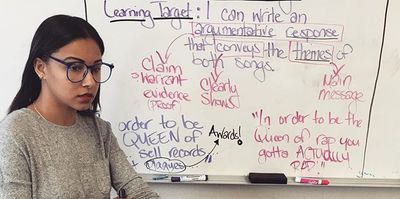 Learning Target: I can write an
argumentative response
that conveys the themes of
both songs.
claim
warrant
evidence
PROOF
clearly
shows
Main
message
order to be
QUEEN of
sell records
plaques
Awards!
"In order to be the
Queen of rap you
gotta ACTUALLY
RAP!"